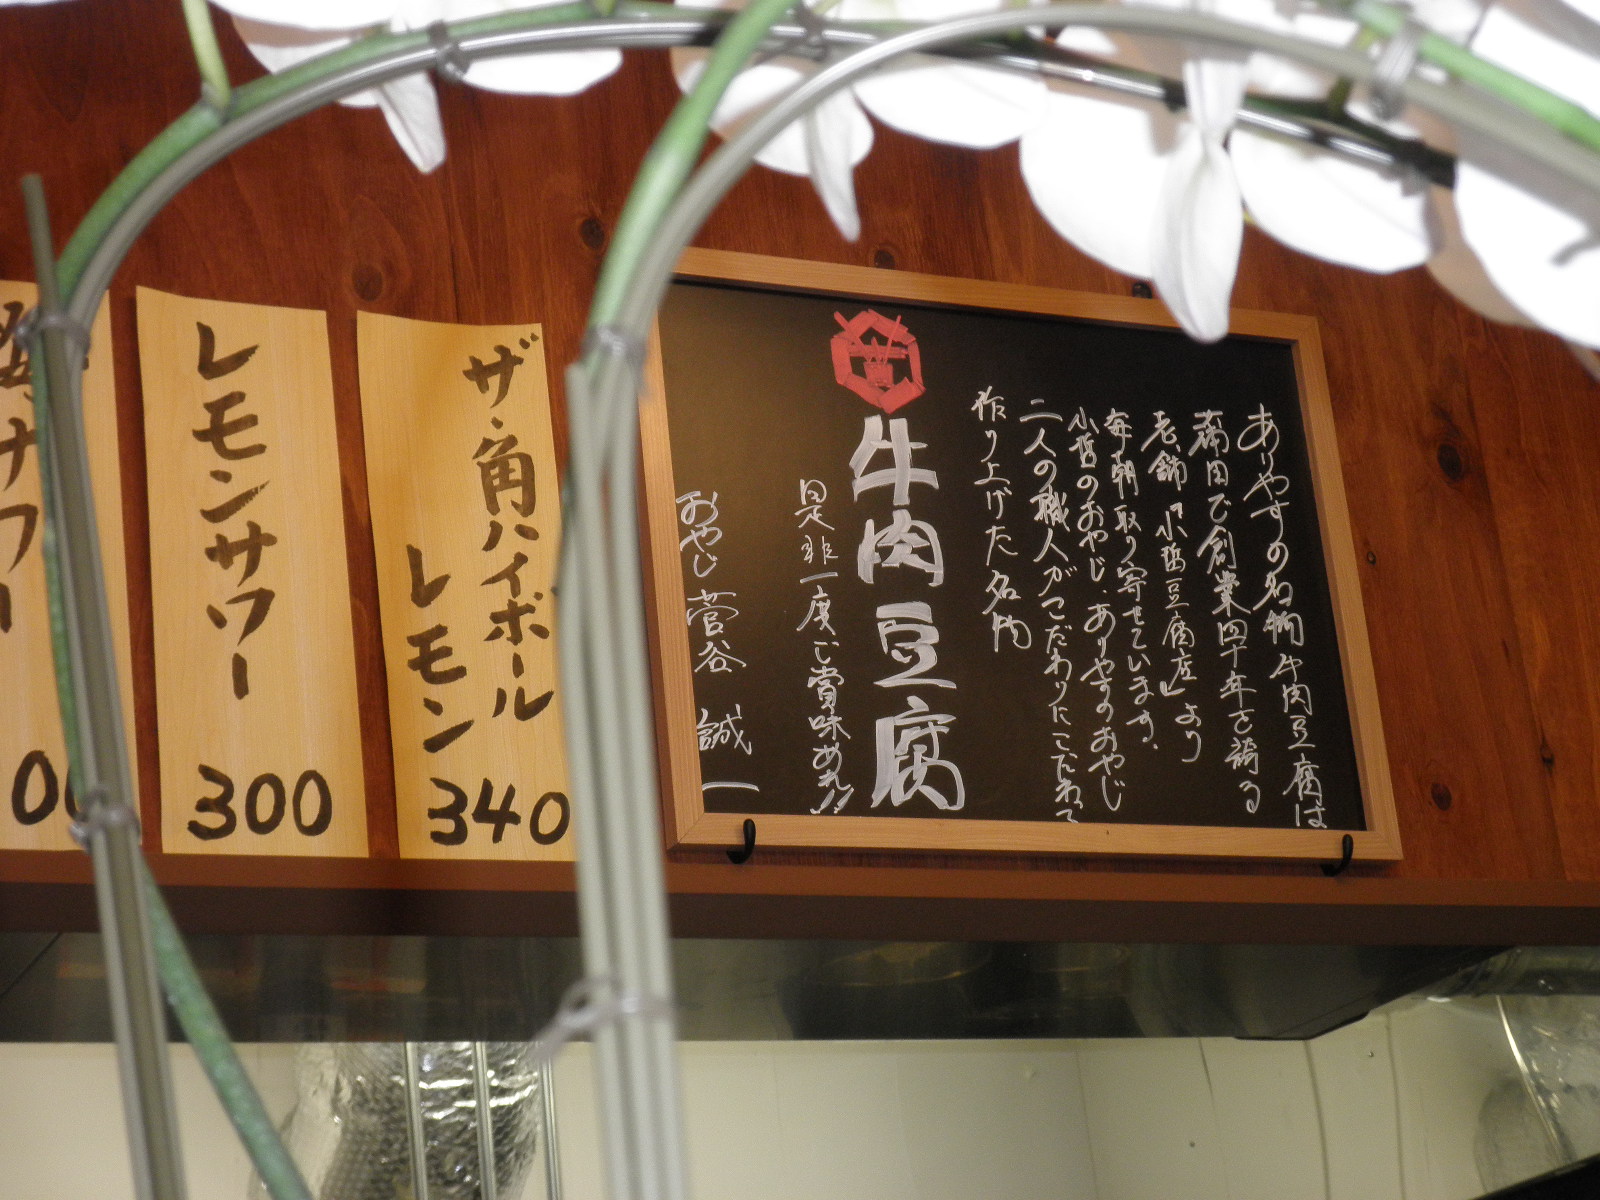 ありやすの名物 牛肉豆腐は
蒲田で創業四十年を誇る
老舗『小哲豆腐店』より
毎朝取り寄せています。
小哲のおやじ、ありやすのおやじ
二人の職人がこだわりにこだわって
作り上げた名物
牛肉豆腐
是非一度ご賞味あれ!!
おやじ 菅谷 誠一
ザ・角ハイボール
レモン
340
レモンサワー
300